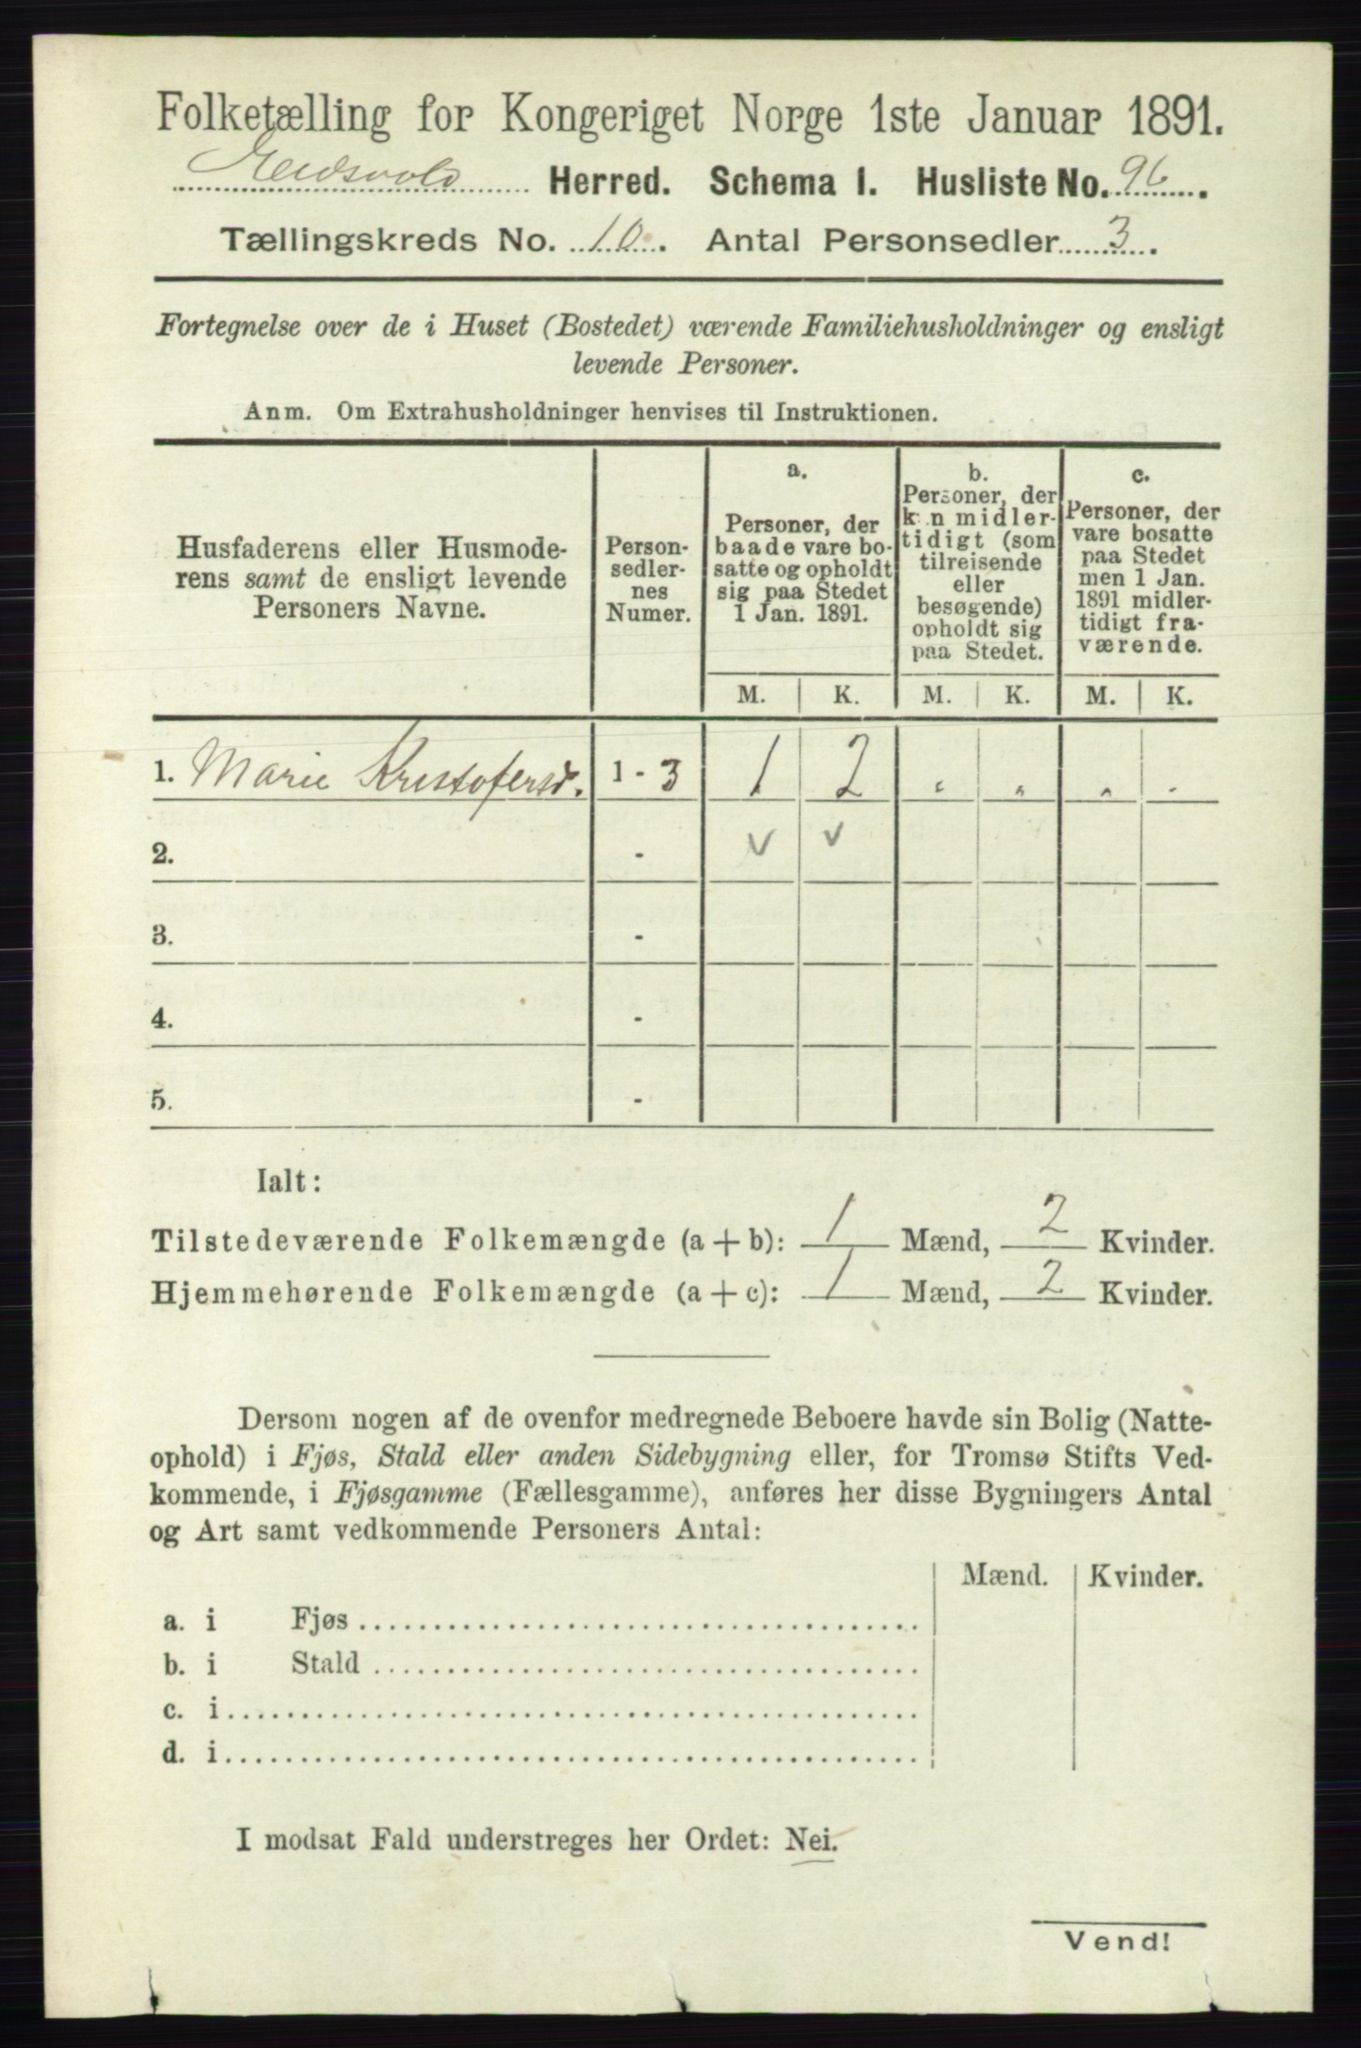 Folketælling for Kongeriget Norge 1ste Januar 1891.
Eidsvold Herred. Schema 1. Husliste No. 96.
Tællingskreds No. 10. Antal Personsedler 3.
Fortegnelse over de i Huset (Bostedet) værende Familiehusholdninger og ensligt
levende Personer.
Anm. Om Extrahusholdninger henvises til Instruktionen.
Husfaderens eller Husmode-
rens samt de ensligt levende
Personers Navne.
Person-
sedler-
nes
Numer.
a.
Personer, der
baade vare bo-
satte og opholdt
sig paa Stedet
1 Jan. 1891.
b.
Personer, der
kun midler-
tidigt (som
tilreisende
eller
besøgende)
opholdt sig
paa Stedet.
c.
Personer, der
vare bosatte
paa Stedet
men 1 Jan.
1891 midler-
tidigt fra-
værende.
M. K. M. K. M. K.
1. Marie Kristofersd. 1 - 3 1 2 " " " "
2. - v v
3. -
4. -
5. -
Ialt:
Tilstedeværende Folkemængde (a + b): 1 Mænd, 2 Kvinder.
Hjemmehørende Folkemængde (a + c): 1 Mænd, 2 Kvinder.
Dersom nogen af de ovenfor medregnede Beboere havde sin Bolig (Natte-
ophold) i Fjøs, Stald eller anden Sidebygning eller, for Tromsø Stifts Ved-
kommende, i Fjøsgamme (Fællesgamme), anføres her disse Bygningers Antal
og Art samt vedkommende Personers Antal:
Mænd. Kvinder.
a. i Fjøs
b. i Stald
c. i
d. i
I modsat Fald understreges her Ordet: Nei.
Vend!